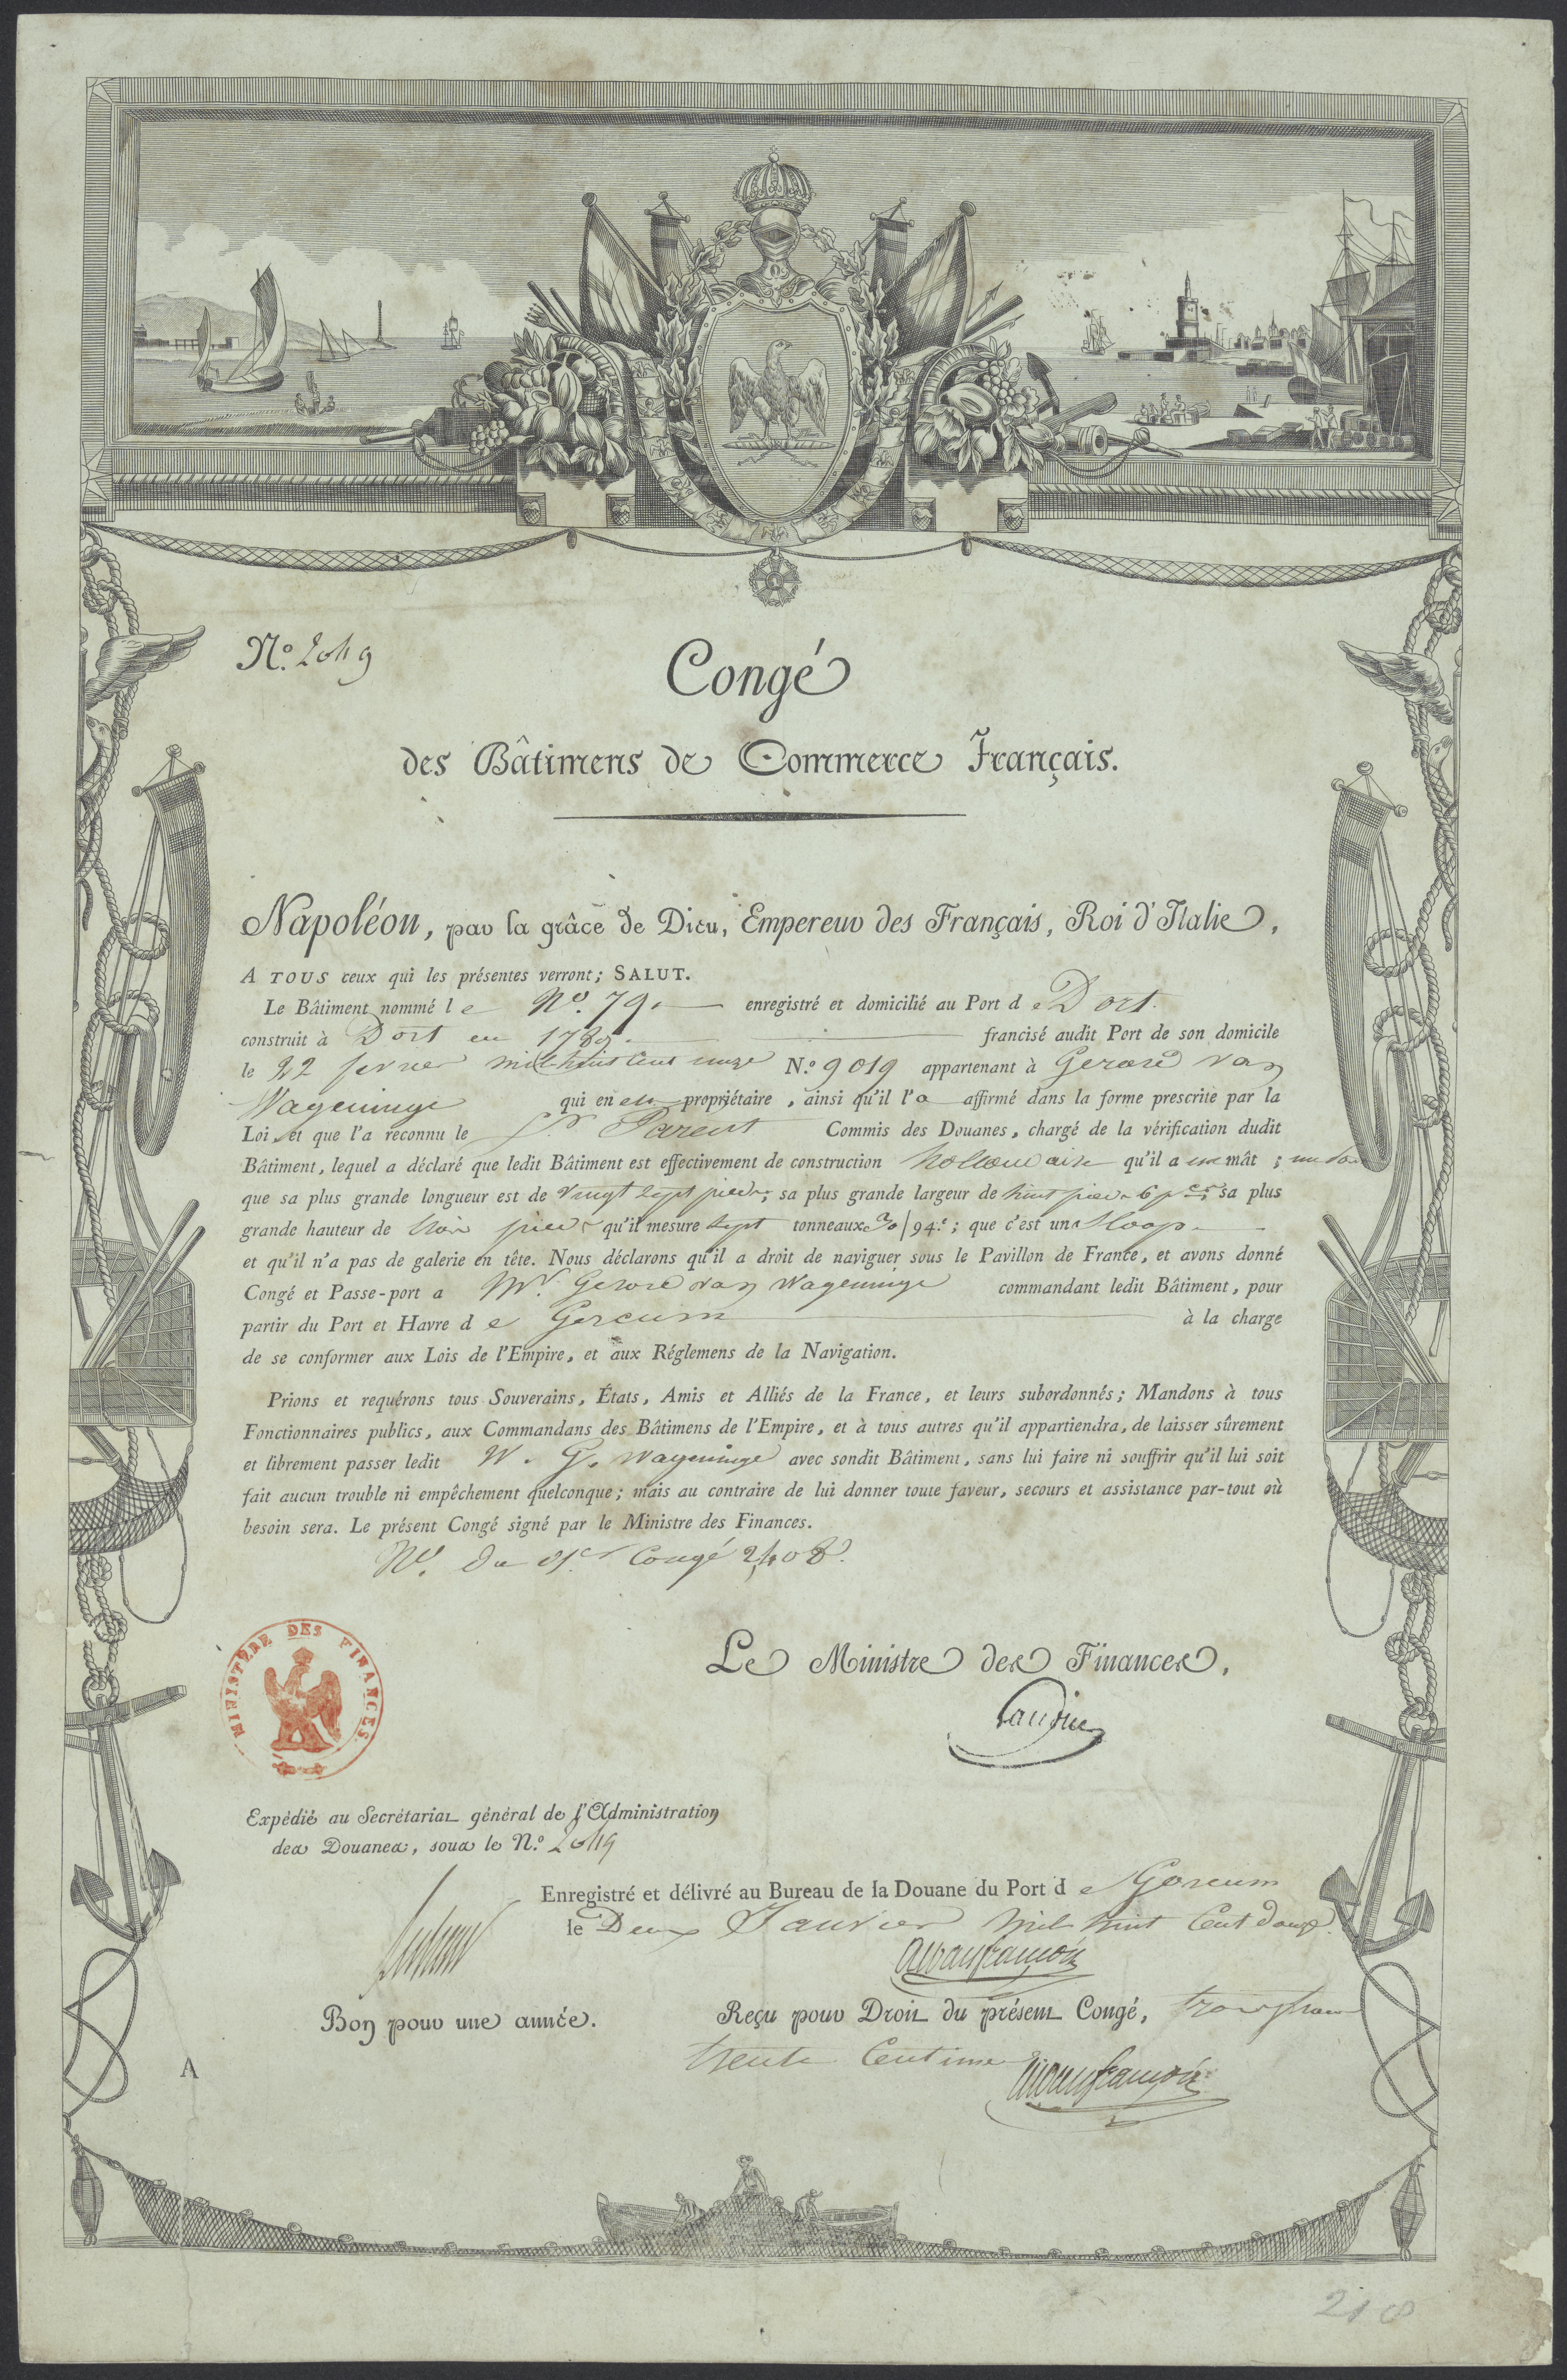 N.º 2049
Congé
des Bâtimens de Commerce Français.
Napoléon, par la grâce de Dieu, Empereur des Français, Roi d'Italie,
A TOUS ceux qui les présentes verront; SALUT.
Le Bâtiment nommé le Nº. 79. enregistré et domicilié au Port de Dort.
construit à Dort en 1789. francisé audit Port de son domicile
le 22 fevrier mil huit cent onze N.º 9019 appartenant à Gerard van
Wageninge qui en est propriétaire, ainsi qu'il l'a affirmé dans la forme prescrite par la
Loi, et que l'a reconnu le Sr Parent Commis des Douanes, chargé de la vérification dudit
Bâtiment, lequel a déclaré que ledit Bâtiment est effectivement de construction hollandaise qu'il a un mât;
que sa plus grande longueur est de vingt sept pieds; sa plus grande largeur de huit pieds 6 pces; sa plus
grande hauteur de trois pieds qu'il mesure sept tonneaux /94.e; que c'est un Sloop
et qu'il n'a pas de galerie en tête. Nous déclarons qu'il a droit de naviguer sous le Pavillon de France, et avons donné
Congé et Passe-port a Mr. Gerard van Wageninge commandant ledit Bâtiment, pour
partir du Port et Havre de Gorcum à la charge
de se conformer aux Lois de l'Empire, et aux Réglemens de la Navigation.
Prions et requérons tous Souverains, États, Amis et Alliés de la France, et leurs subordonnés; Mandons à tous
Fonctionnaires publics, aux Commandans des Bâtimens de l'Empire, et à tous autres qu'il appartiendra, de laisser sûrement
et librement passer ledit W. G. Wageninge avec sondit Bâtiment, sans lui faire ni souffrir qu'il lui soit
fait aucun trouble ni empêchement quelconque; mais au contraire de lui donner toute faveur, secours et assistance par-tout où
besoin sera. Le présent Congé signé par le Ministre des Finances.
Nº. du Congé 2408.
MINISTÈRE DES FINANCES
Le Ministre des Finances,
Expédié au Secrétariat général de l'Administration
des Douanes, sous le N.º 2049
Enregistré et délivré au Bureau de la Douane du Port de Gorcum
le Deux Janvier mil huit Cent douze.
Bon pour une année.
Reçu pour Droit du présent Congé, trois francs
trente Centimes
A
218